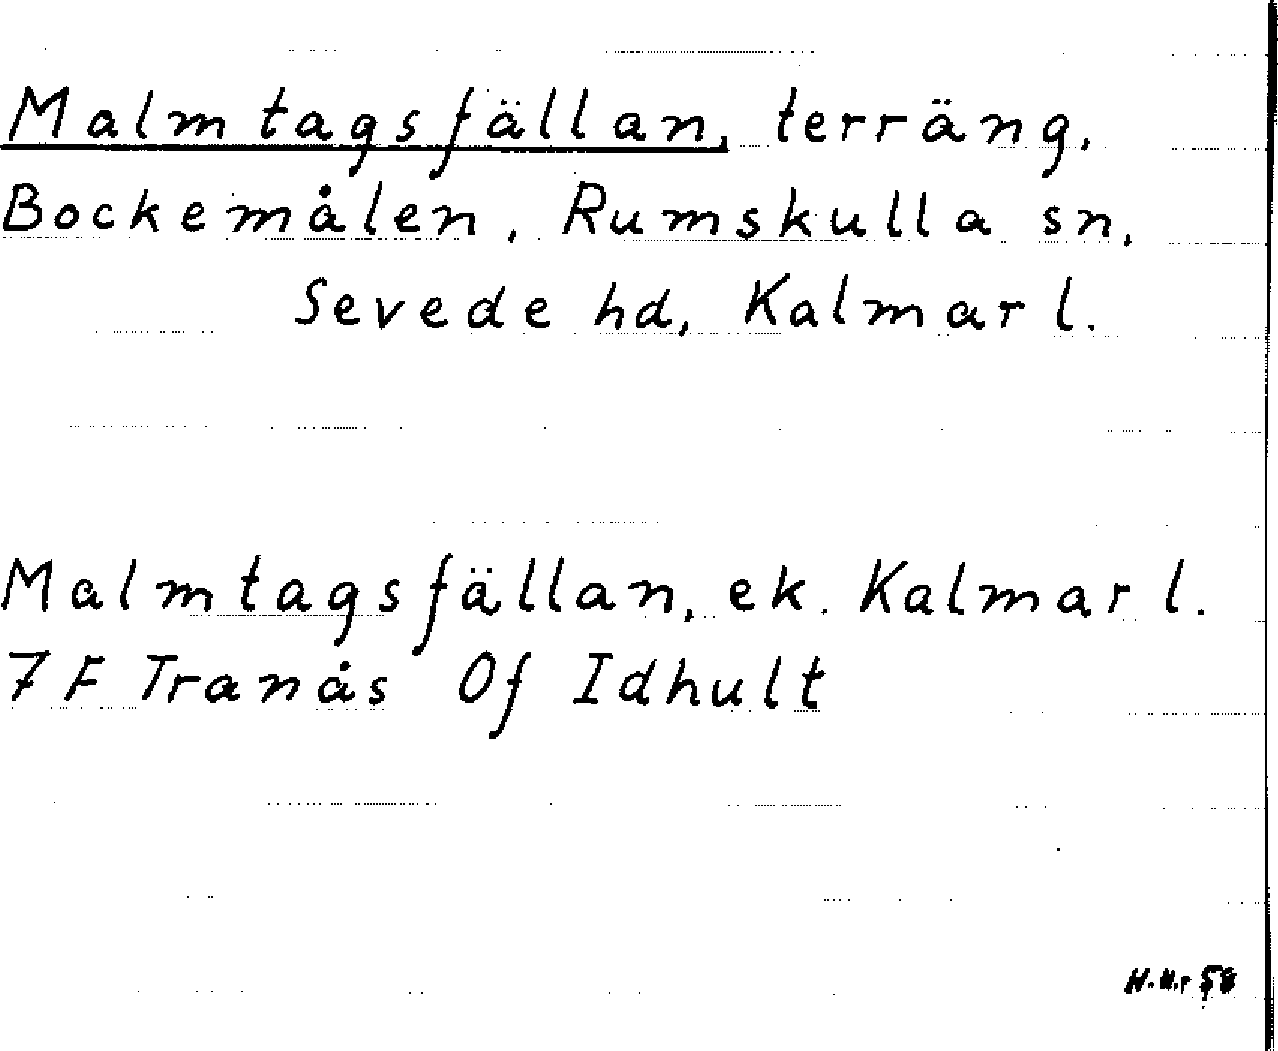 Malmtagsfällan, terräng,
Bockemålen, Rumskulla sn,
Sevede hd, Kalmar l.
Malmtagsfällan, ek. Kalmar l.
7 F Tranås 0f Idhult
58